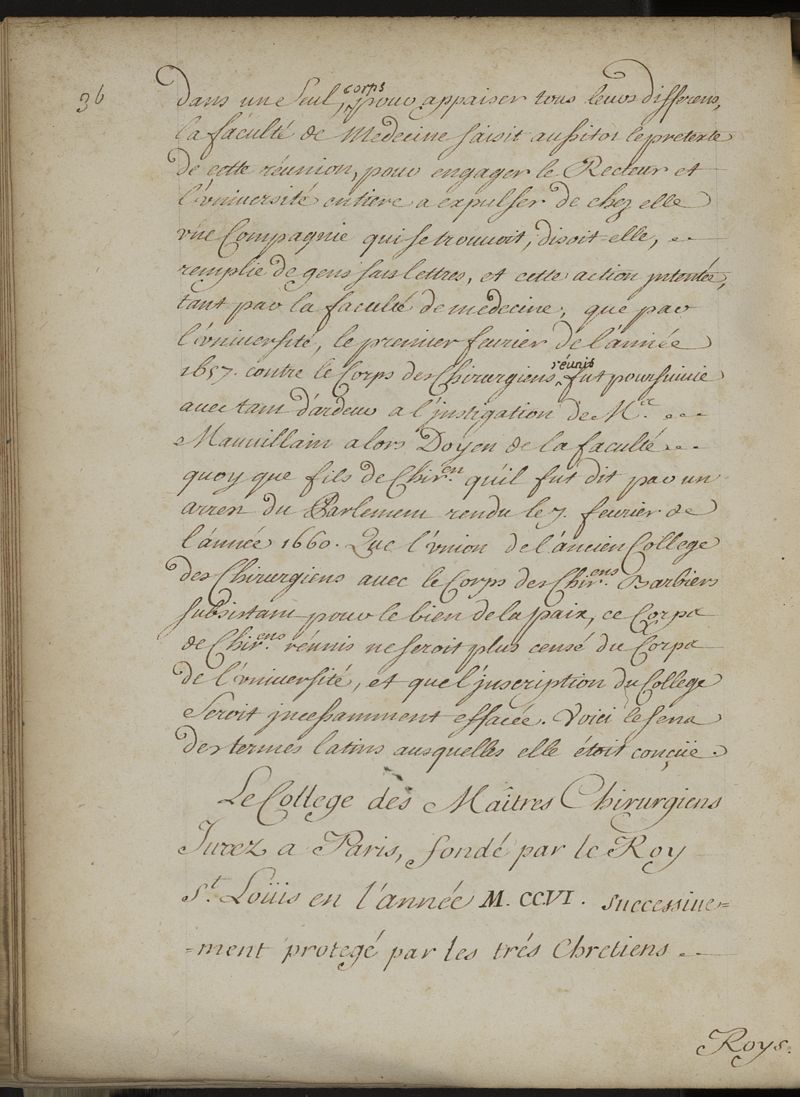 36
dans un seul corps, pour appaiser tous leurs differens,
la faculté de Medecine saisit aussitot le pretexte
de cette réunion, pour engager le Recteur et
l'vniuersité entiere a expulser de chez elle
vne Compagnie qui se trouuoit, disoit-elle,
remplie de gens sans lettres, et cette action intentée,
tant par la faculté de medecine, que par
l'vniuersité, le premier feurier de l'année
1657. contre le Corps des Chirurgiens réunis fut poursuiuie
auec tant d'ardeur a l'jnstigation de M.e
Mauuillain alors Doyen de la faculté
quoy que fils de Chir.en qu'il fut dit par un
arrest du Parlement rendu le 7. feurier de
l'année 1660. Que l'vnion de l'ancien College
des Chirurgiens auec le Corps des Chir.ens Barbiers
subsistant pour le bien de la paix, ce Corps
de Chir.ens réunis ne seroit plus censé du Corps
de l'vniuersité, et que l'jnscription du College
seroit jncessamment effacée. Voici le sens
des termes latins ausquelles elle étoit conçüe.
Le College des Maîtres Chirurgiens
Jurez a Paris, fondé par le Roy
S.t Loüis en l'année M. CCVI. successiue=
=ment protegé par les trés Chretiens
Roys.